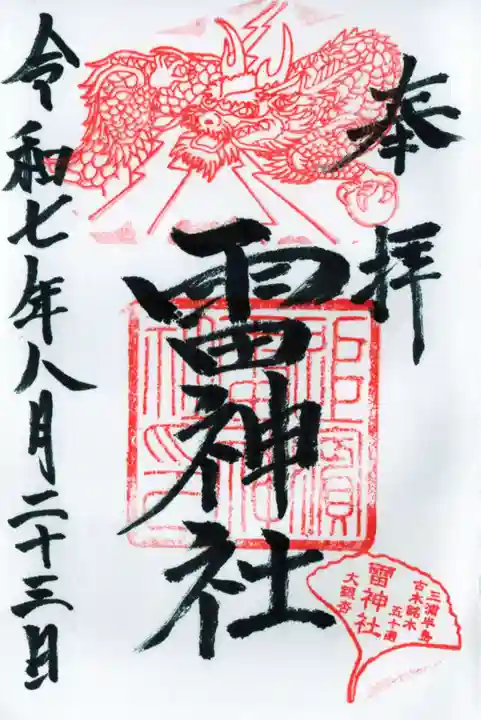 奉拝
雷神社
令和七年八月二十三日
三浦半島
古木銘木
五十選
雷神社
大銀杏